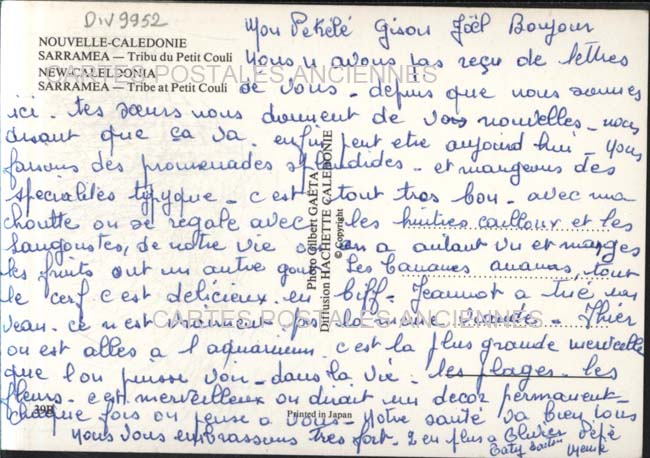 DIV 9952
NOUVELLE-CALEDONIE
SARRAMEA — Tribu du Petit Couli
NEW-CALELDONIA
SARRAMEA — Tribe at Petit Couli
CARTES POSTALES ANCIENNES
Mon Pekélé Gisou Joël Bonjour
Nous n avons pas reçu de lettres
de vous - depuis que nous sommes
ici. tes sœurs nous donnent de vos nouvelles - nous
disant que ça va. enfin peut etre aujourd hui - nous
faisons des promenades splendides - et mangeons des
specialités typyque - c est tout tres bon - avec ma
choutte on se regale avec les huitres cailloux et les
langoustes, de notre vie on en a autant vu et manges
les fruits ont un autre gout Les bananes ananas, tout
le cerf c'est délicieux en biff - Jeannot a tué un
veau. ce n est vraiment pas la meme viande - Thier
on est alles a l aquarium. c'est la plus grande merveille
que l'on puisse voir - dans la vie. les plages - les
fleurs - c est merveilleux on dirait un decor permanent -
chaque fois on pense a vous - Notre santé va bien tous
Nous vous embrassons tres fort - 2 en plus a Olivier
Photo Gilbert GAËTA
Diffusion HACHETTE CALEDONIE
© Copyright
CARTES POSTALES ANCIENNES
39B
Printed in Japan